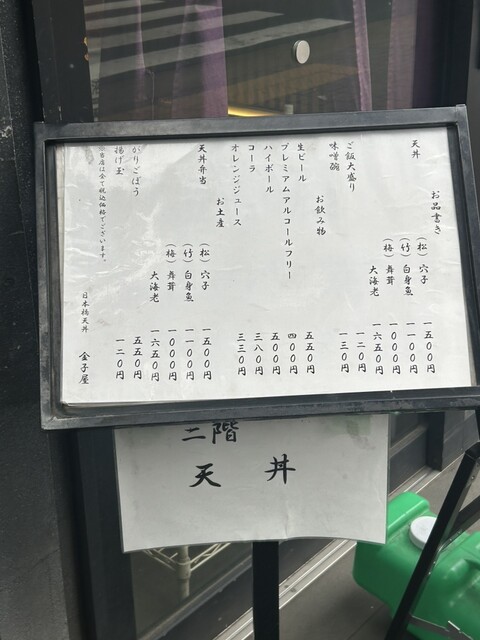 お品書き
天丼
(松) 穴子 一五〇〇円
(竹) 白身魚 一一〇〇円
(梅) 舞茸 一〇〇〇円
大海老 一六五〇円
ご飯大盛り 一二〇円
味噌碗 一三〇円
お飲み物
生ビール 五五〇円
プレミアムアルコールフリー 四〇〇円
ハイボール 五〇〇円
コーラ 三八〇円
オレンジジュース 三三〇円
お土産
天丼弁当
(松) 穴子 一五〇〇円
(竹) 白身魚 一一〇〇円
(梅) 舞茸 一〇〇〇円
大海老 一六五〇円
かりごぼう 五五〇円
揚げ玉 一二〇円
※当店は全て税込価格でございます。
日本橋天丼 金子屋
二階
天丼